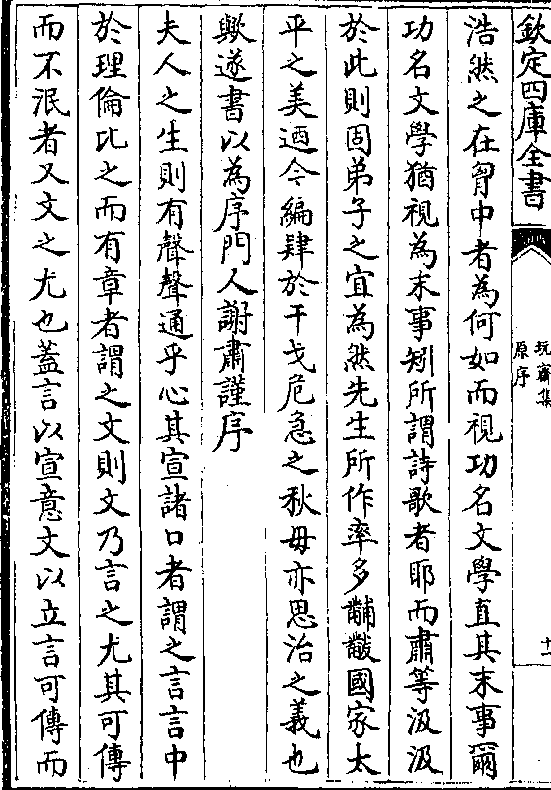 欽定四庫全書
玩齋集
原序
十一
浩然之在胷中者為何如而視功名文學直其末事爾
功名文學猶視為末事矧所謂詩歌者耶而肅等汲汲
於此則固弟子之宜為然先生所作率多黼黻國家太
平之美迺今編肄於干戈危急之秋毋亦思治之義也
歟遂書以為序門人謝肅謹序
夫人之生則有聲聲通乎心其宣諸口者謂之言言中
於理倫比之而有章者謂之文則文乃言之尤其可傳
而不泯者又文之尤也蓋言以宣意文以立言可傳而